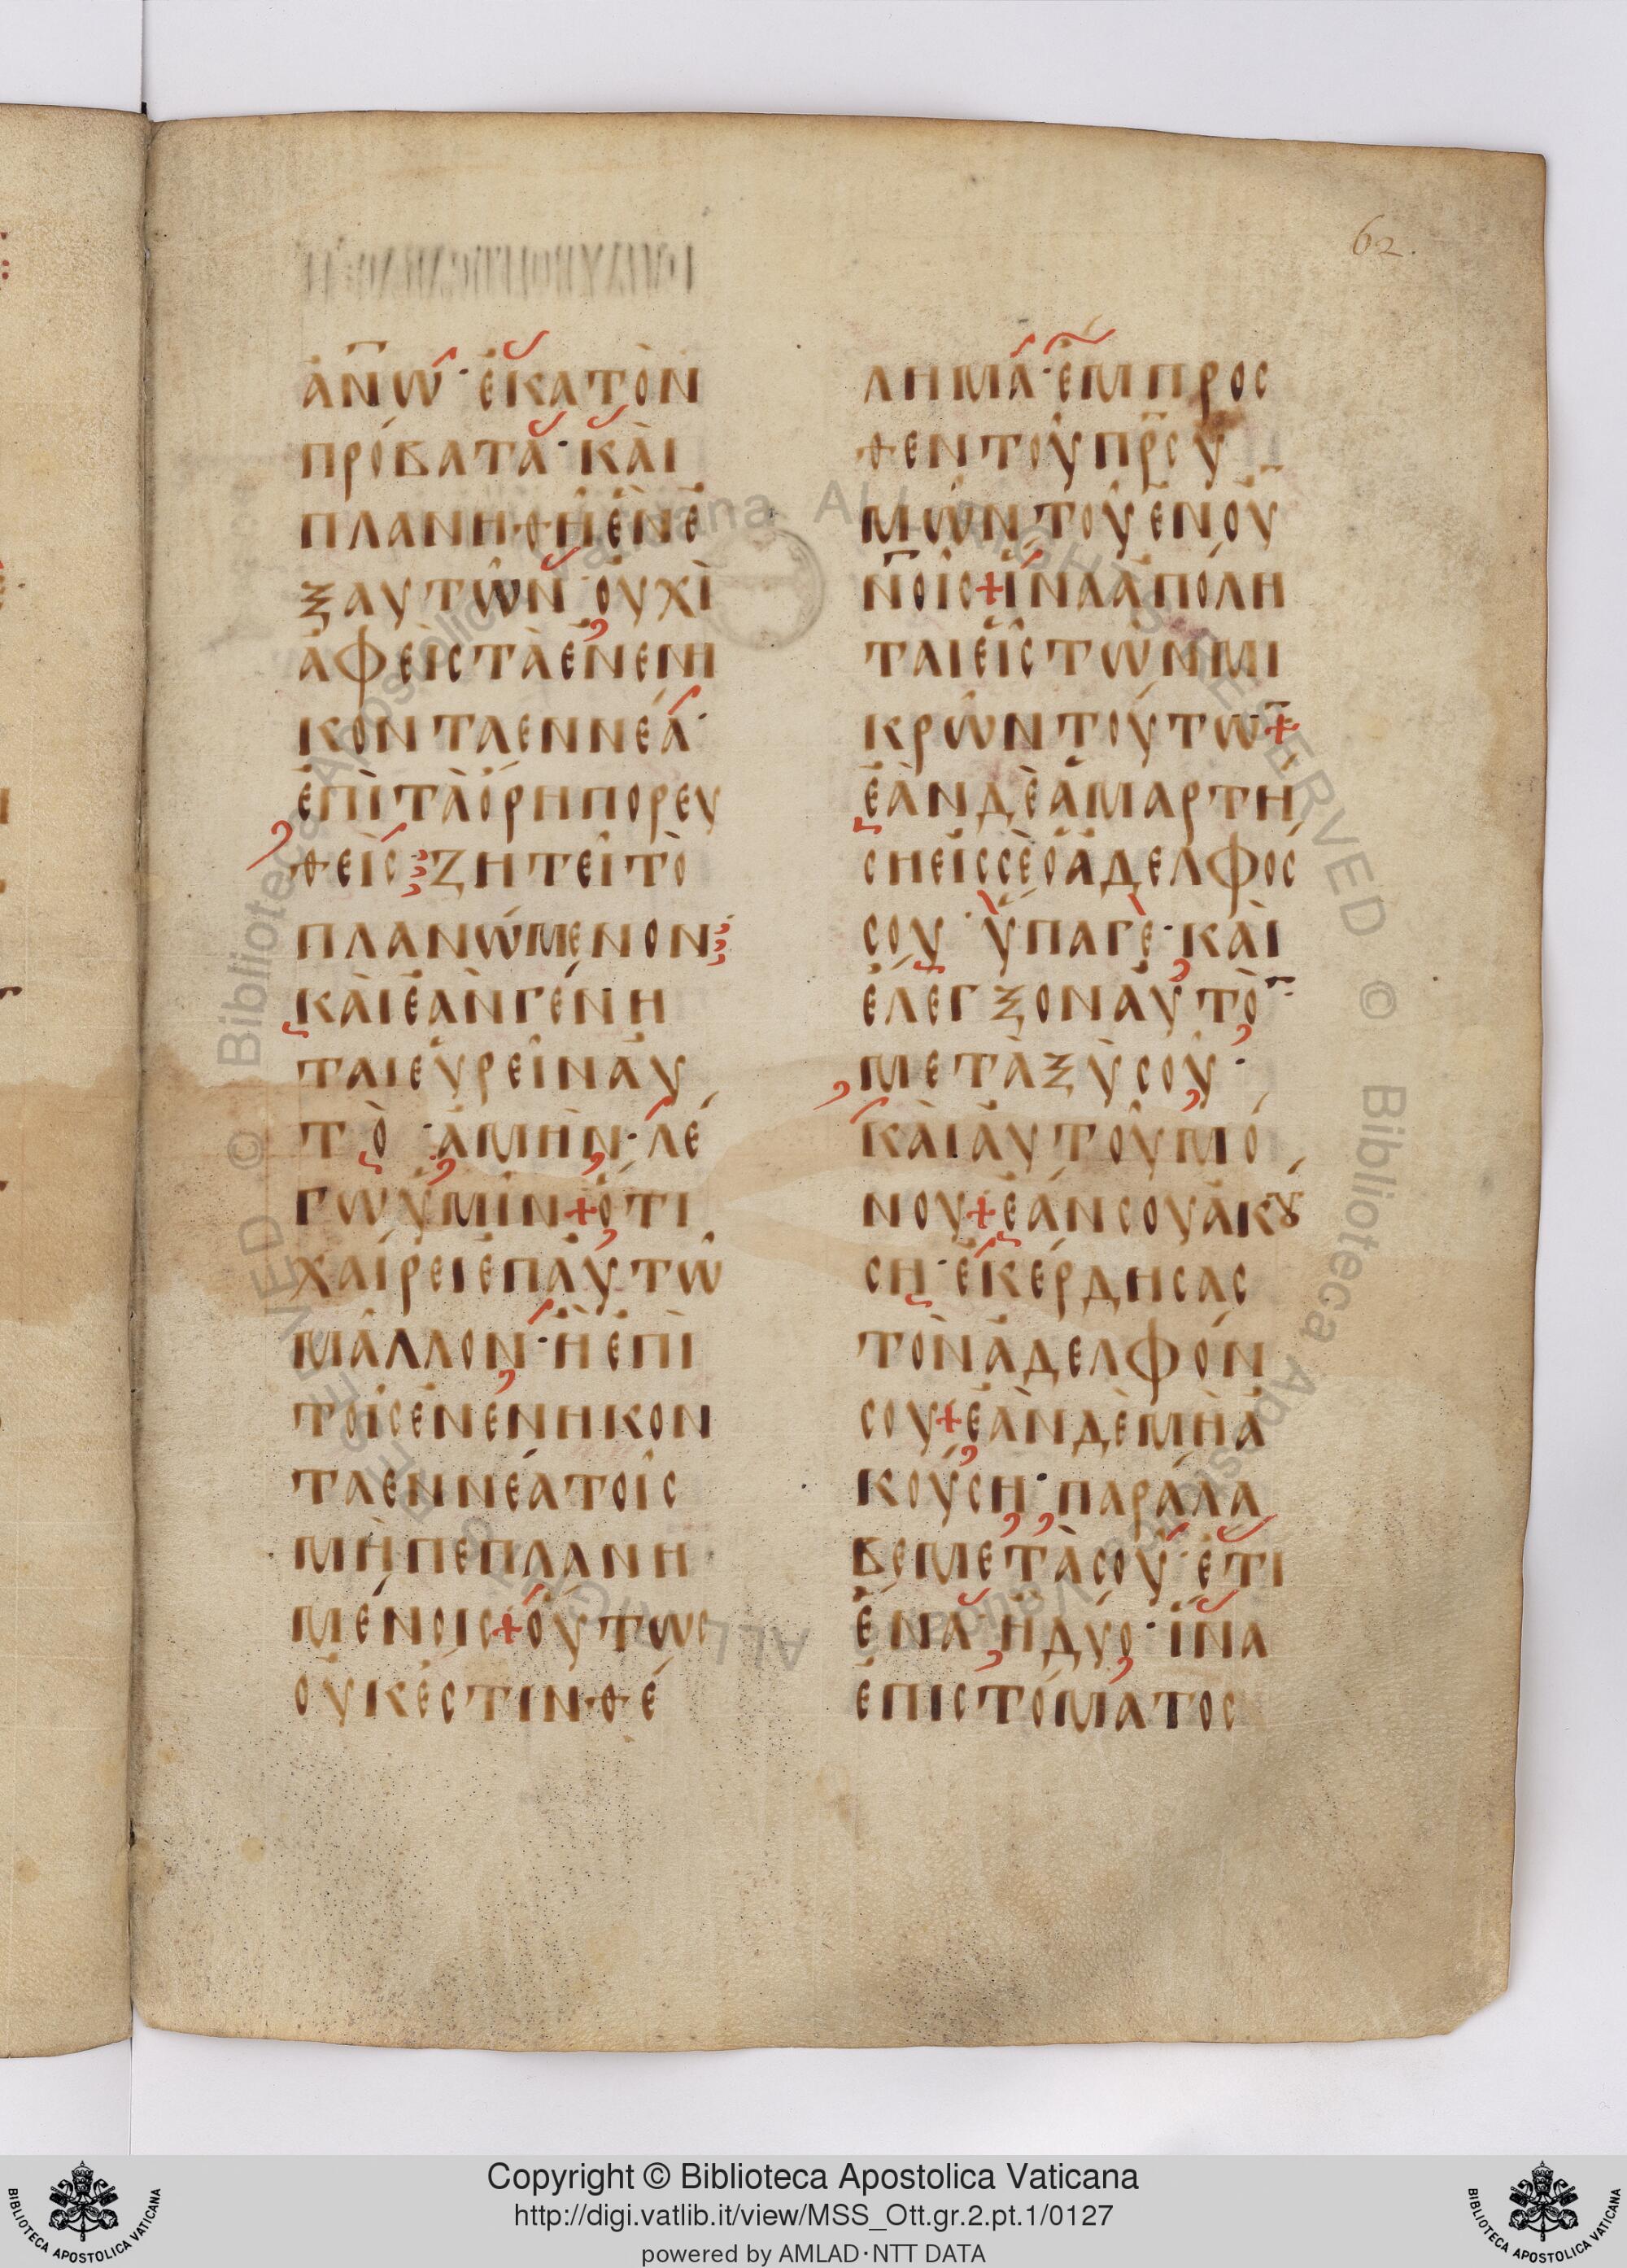 62.
ἀν̅ω̅· ἑκατὸν
πρόβατα· καὶ
πλανηθῆἓνἐ
ξαυτῶν· οὐχὶ
ἀφεὶςτὰἐνενη
κονταεννέα·
ἐπὶτὰὄρηπορευ
θεὶς ζητεῖτὸ
πλανώμενον
καὶἐὰνγένη
ταιεὑρεῖναὐ
τὸ· ἀμὴν· λέ
γωὑμῖν + ὅτι
χαίρειἐπαὐτῶ
μᾶλλον· ἢἐπὶ
τοῖςἐνενηκον
ταεννέατοῖς
μὴπεπλανη
μένοις + οὕτως
οὐκἔστινθέ
λημα· ἔμπρος
θεντοῦπρ̅ςὑ
μῶντοῦἐνου
ν̅οῖς + ἵναἀπόλη
ταιεἷςτῶνμι
κρῶντούτω̅ +
ἐὰνδὲἁμαρτή
σηεἰςσὲὁἀδελφός
σου· ὕπαγε· καὶ
ἔλεγξοναὐτὸ̅·
μεταξὺσοῦ·
καὶαὐτοῦμό
νου + ἐάνσουἀκȣ
ση· ἐκέρδησας
τὸνἀδελφόν
σου + ἐὰνδὲμὴἀ
κούση· παράλα
βεμετὰσοῦ· ἔτι
ἕνα· ἢδύο· ἵνα
ἐπιστόματος
Copyright © Biblioteca Apostolica Vaticana
http://digi.vatlib.it/view/MSS_Ott.gr.2.pt.1/0127
powered by AMLAD·NTT DATA
BIBLIOTECA APOSTOLICA VATICANA
BIBLIOTECA APOSTOLICA VATICANA